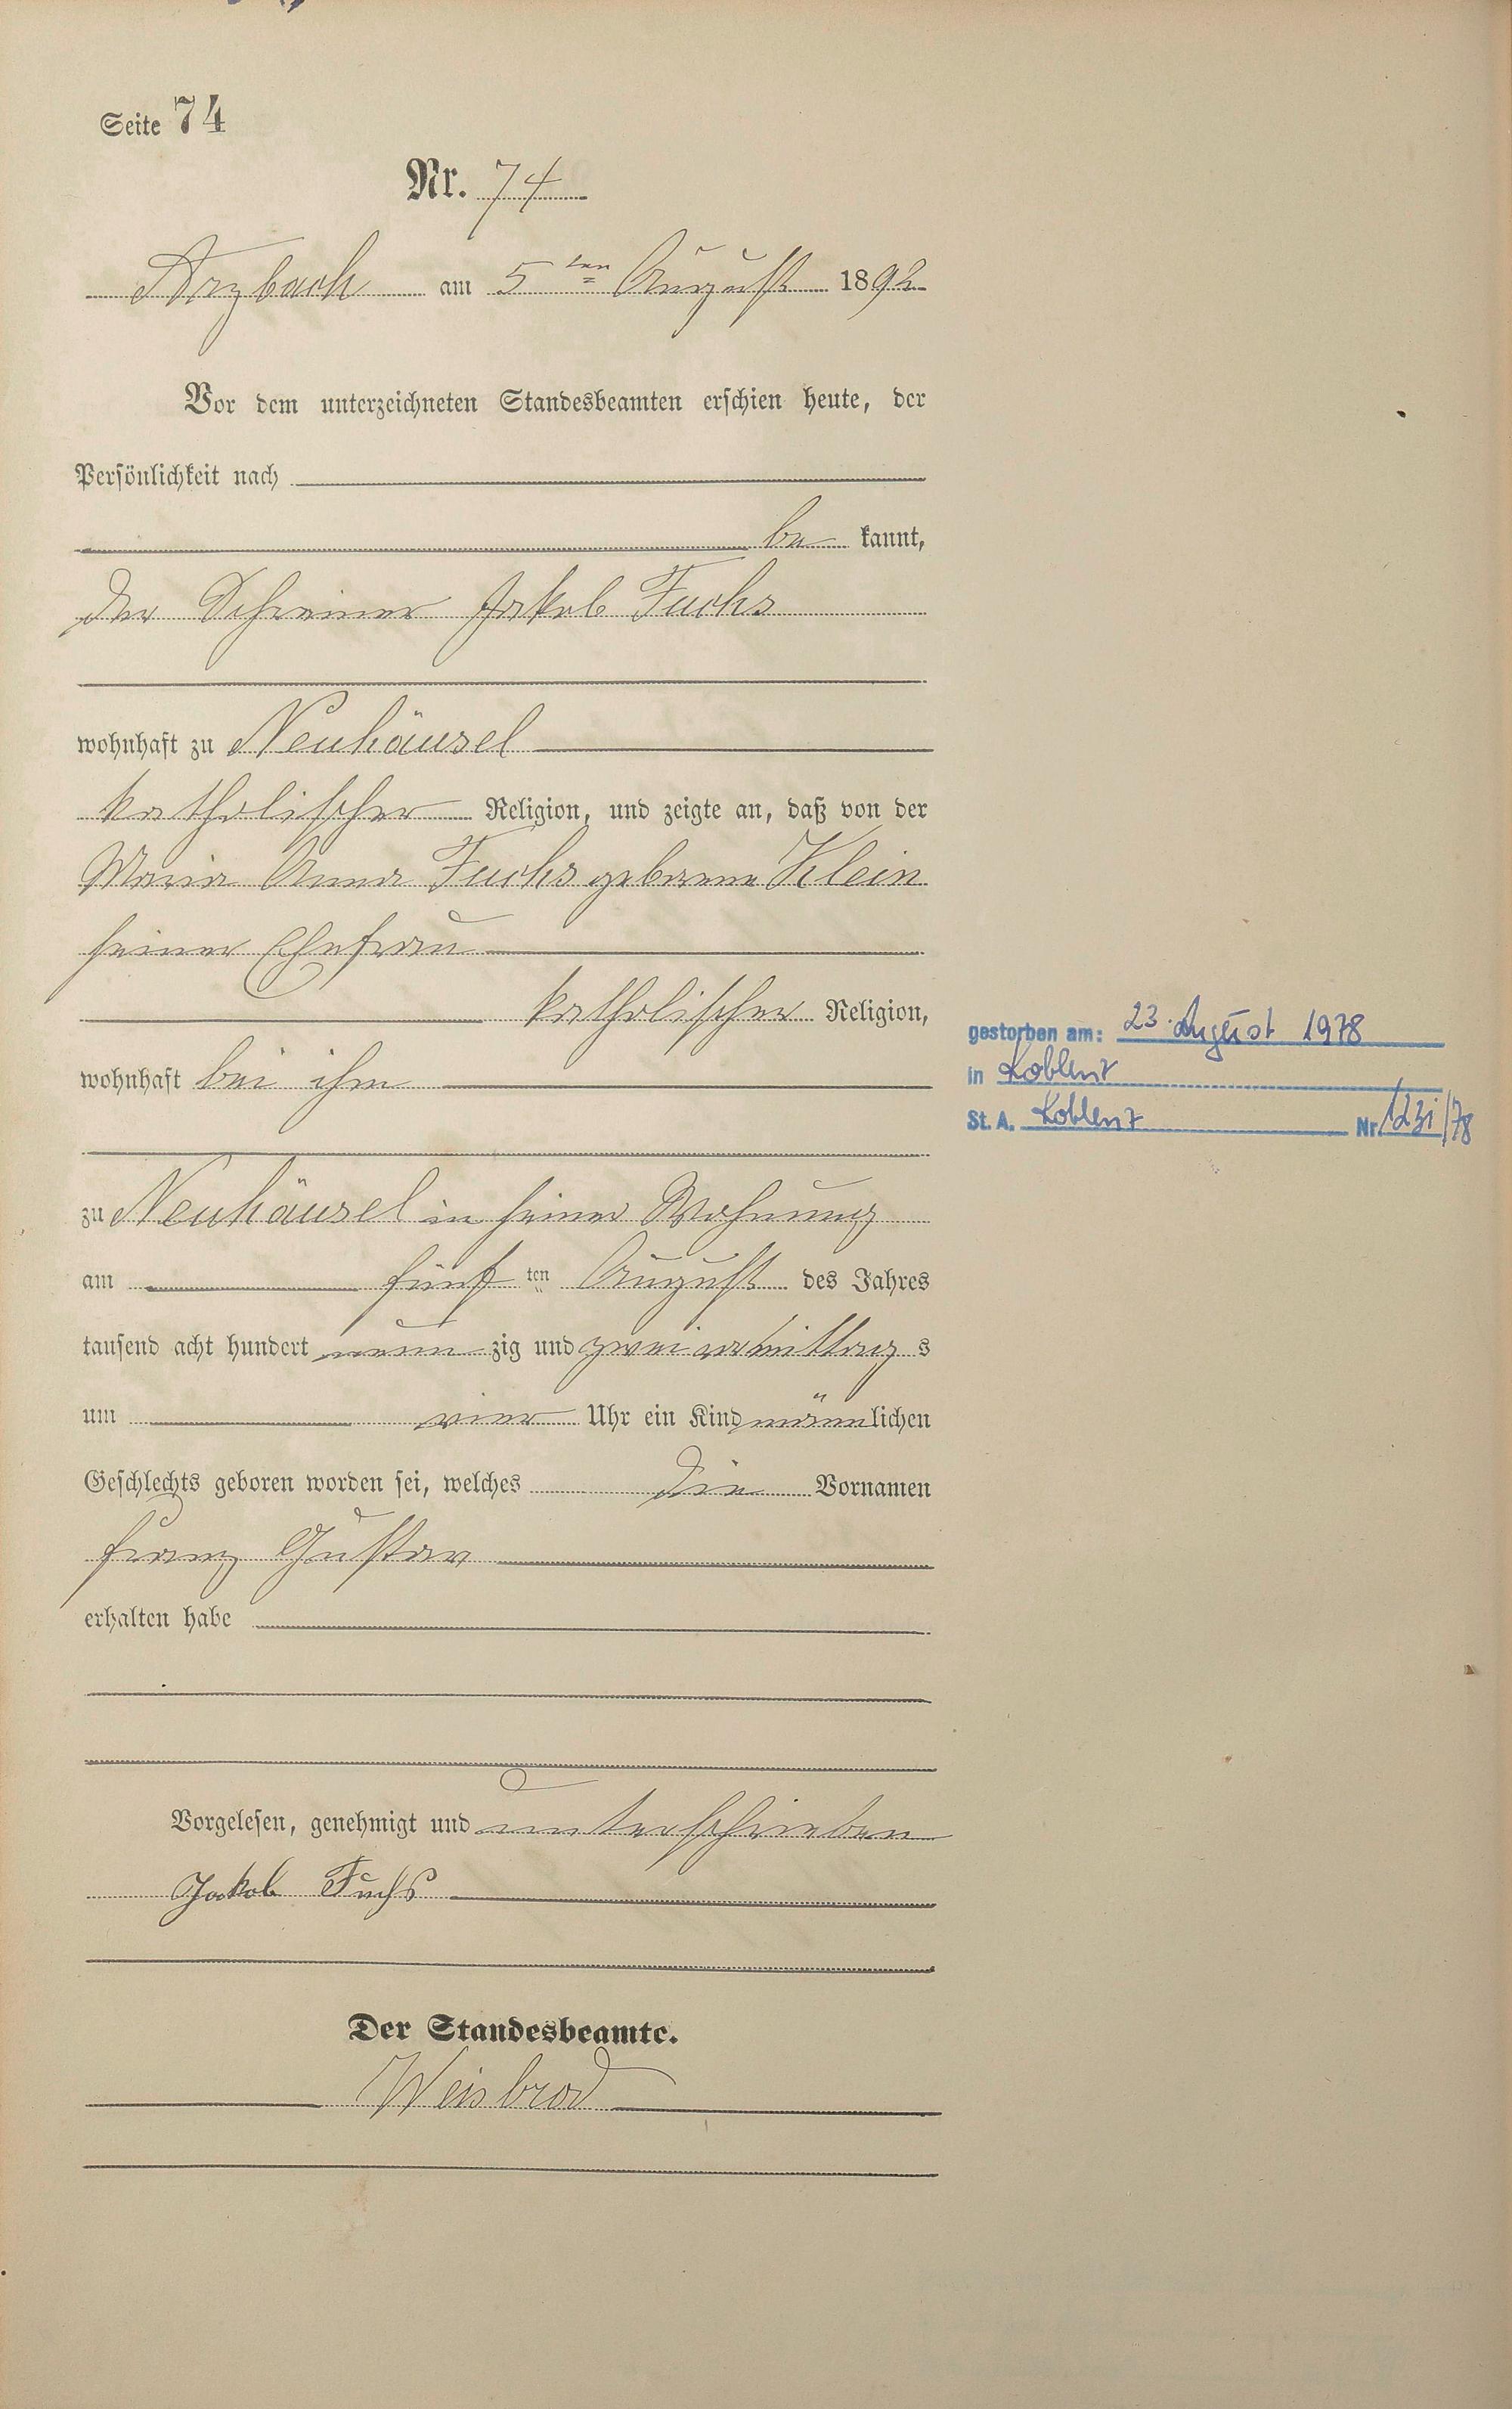 Seite 74
Nr. 74
Arzbach am 5ten August 1892
Vor dem unterzeichneten Standesbeamten erschien heute, der
Persönlichkeit nach
be kannt,
der Schreiner Jakob Fuchs
wohnhaft zu Neuhäusel
katholischer Religion, und zeigte an, daß von der
Maria Anna Fuchs geborene Klein
seiner Ehefrau
katholischer Religion,
wohnhaft bei ihm
zu Neuhäusel in seiner Wohnung
am fünf ten August des Jahres
tausend acht hundert neun zig und zwei vormittag s
um vier Uhr ein Kind männlichen
Geschlechts geboren worden sei, welches die Vornamen
Franz Gustav
erhalten habe
Vorgelesen, genehmigt und unterschrieben
Jakob Fuchs
Der Standesbeamte.
Weisbrod
gestorben am: 23. August 1978
in Koblenz
St. A. Koblenz Nr. 1231/78